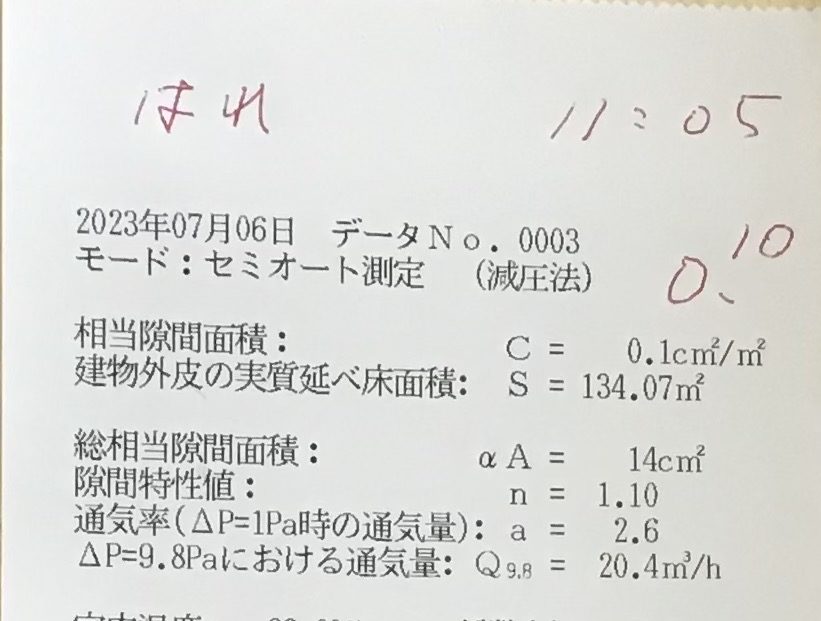 はれ 11:05
2023年07月06日 データNo. 0003
0.10
モード:セミオート測定 (減圧法)
相当隙間面積: C = 0.1cm²/m²
建物外皮の実質延べ床面積: S = 134.07m²
総相当隙間面積: αA = 14cm²
隙間特性値: n = 1.10
通気率(ΔP=1Pa時の通気量): a = 2.6
ΔP=9.8Paにおける通気量: Q9.8 = 20.4m³/h